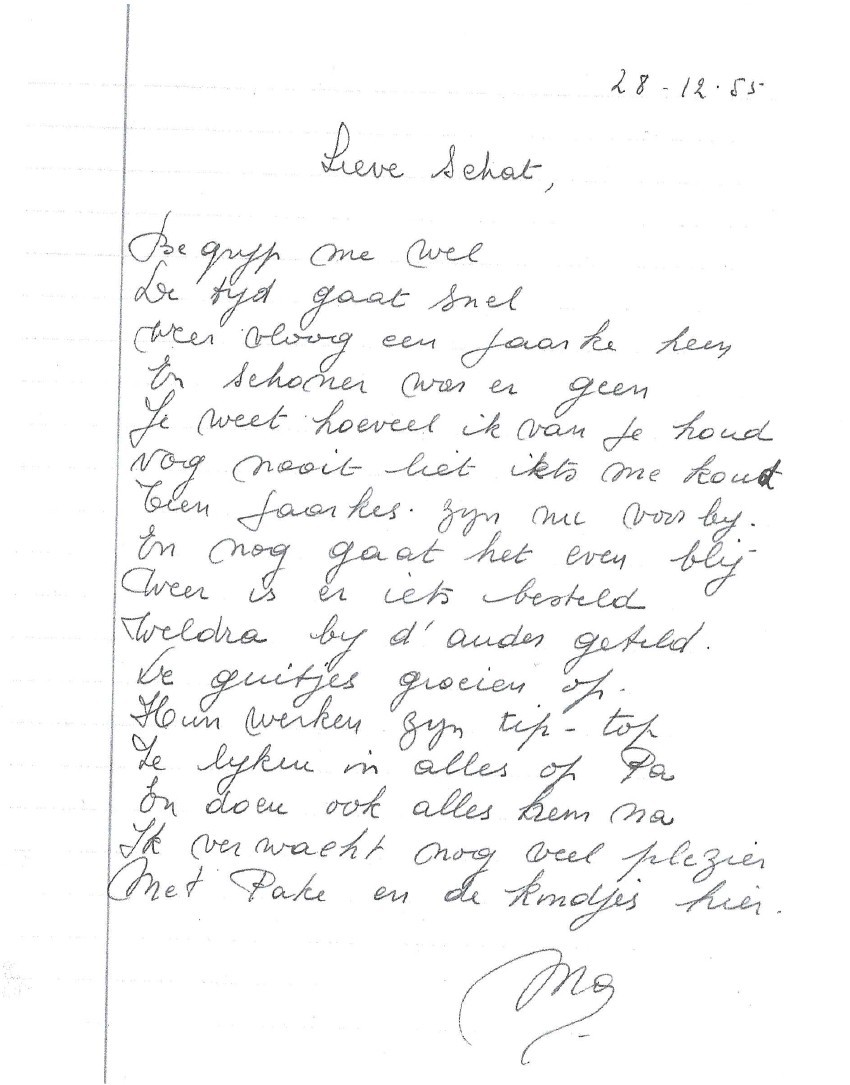 28-12-55
Lieve Schat,
Begryp me wel
De tyd gaat snel
Weer vloog een jaarke heen
En schoner was er geen
Je weet hoeveel ik van je houd
Nog nooit liet ikts me koud
Tien jaarkes. zyn nu voorby.
En nog gaat het even blij
Weer is er iets besteld
Weldra by d'ander geteld.
De guitjes groeien op.
Hun werken zyn tip-top
Ze lyken in alles op Pa
En doen ook alles hem na
Ik verwacht nog veel plezier
Met Pake en de kindjes hier.
Ma